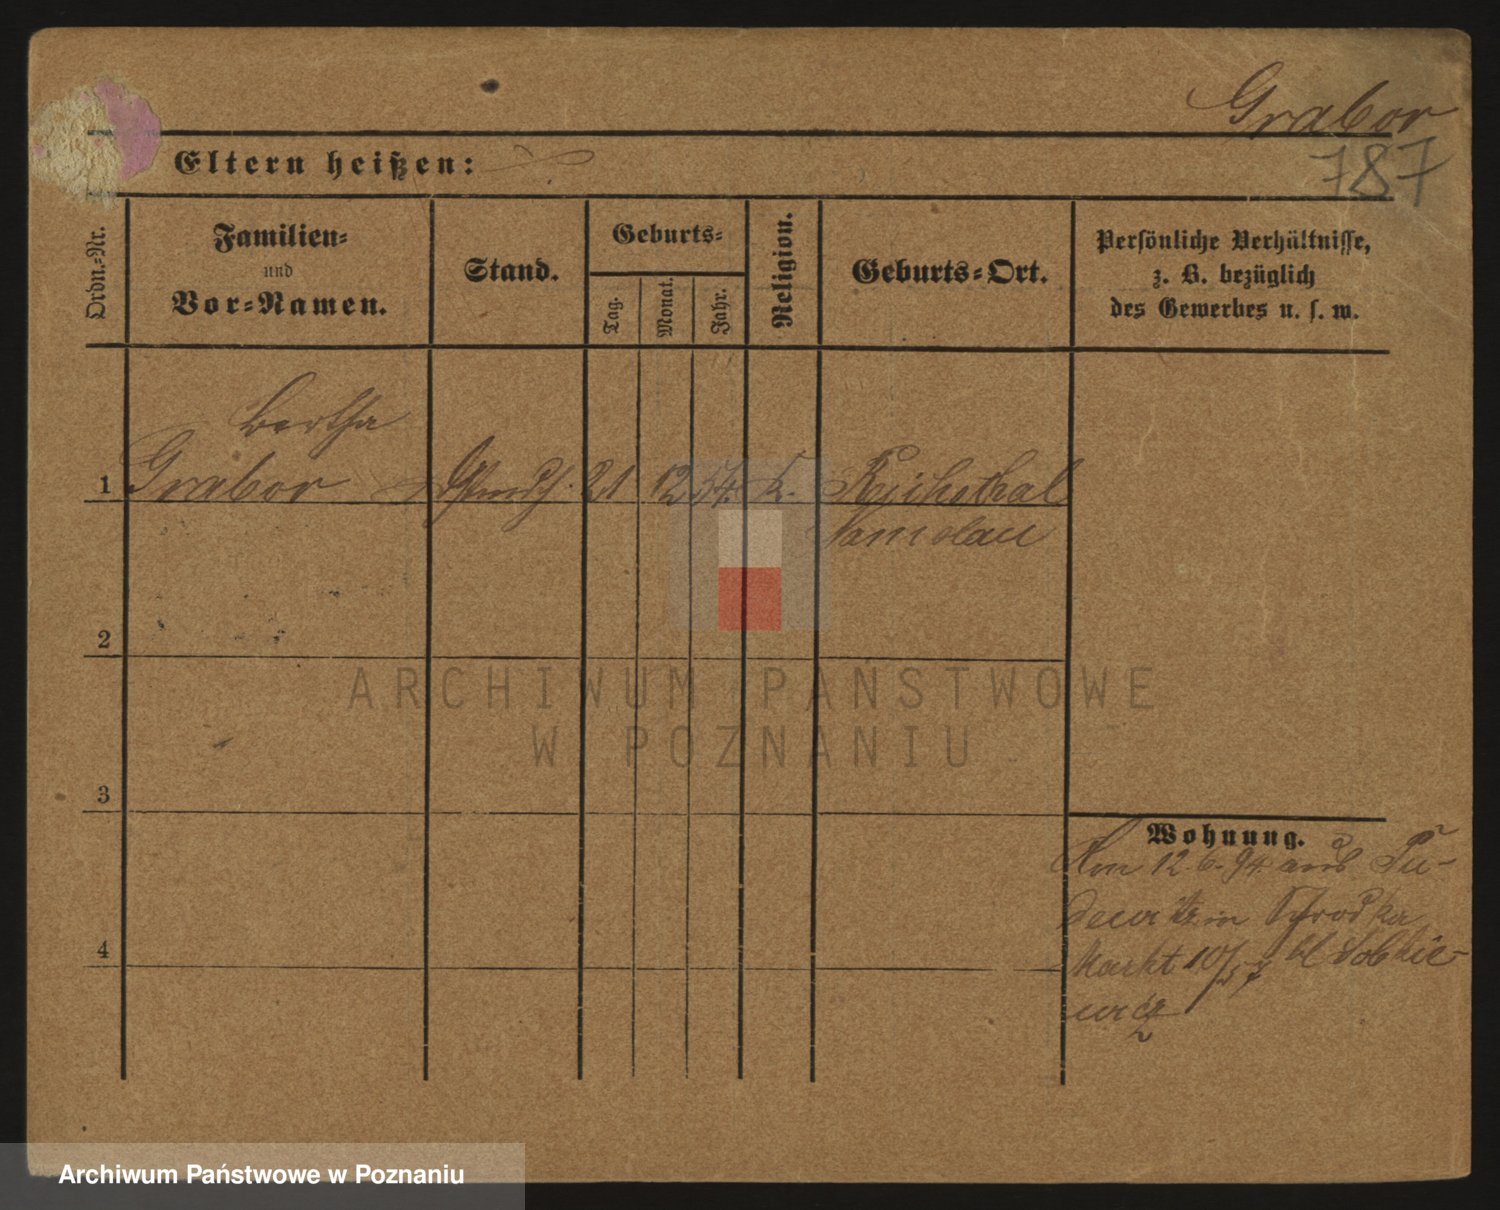 Grabor
787
Eltern heißen:
Ordn.-Nr.
Familien-
und
Vor-Namen.
Stand.
Geburts-
Tag.
Monat.
Jahr.
Religion.
Geburts-Ort.
Persönliche Verhältnisse,
z. B. bezüglich
des Gewerbes u. s. w.
Bertha
1 Grabor 21 12 54. k. Reichthal
Namslau
2
3
4
Wohnung.
Am 12. 6. 94. aus Pu-
dewitz in Schrodka
Markt 10/ bl Sobkie-
wicz
ARCHIWUM PAŃSTWOWE
W POZNANIU
Archiwum Państwowe w Poznaniu